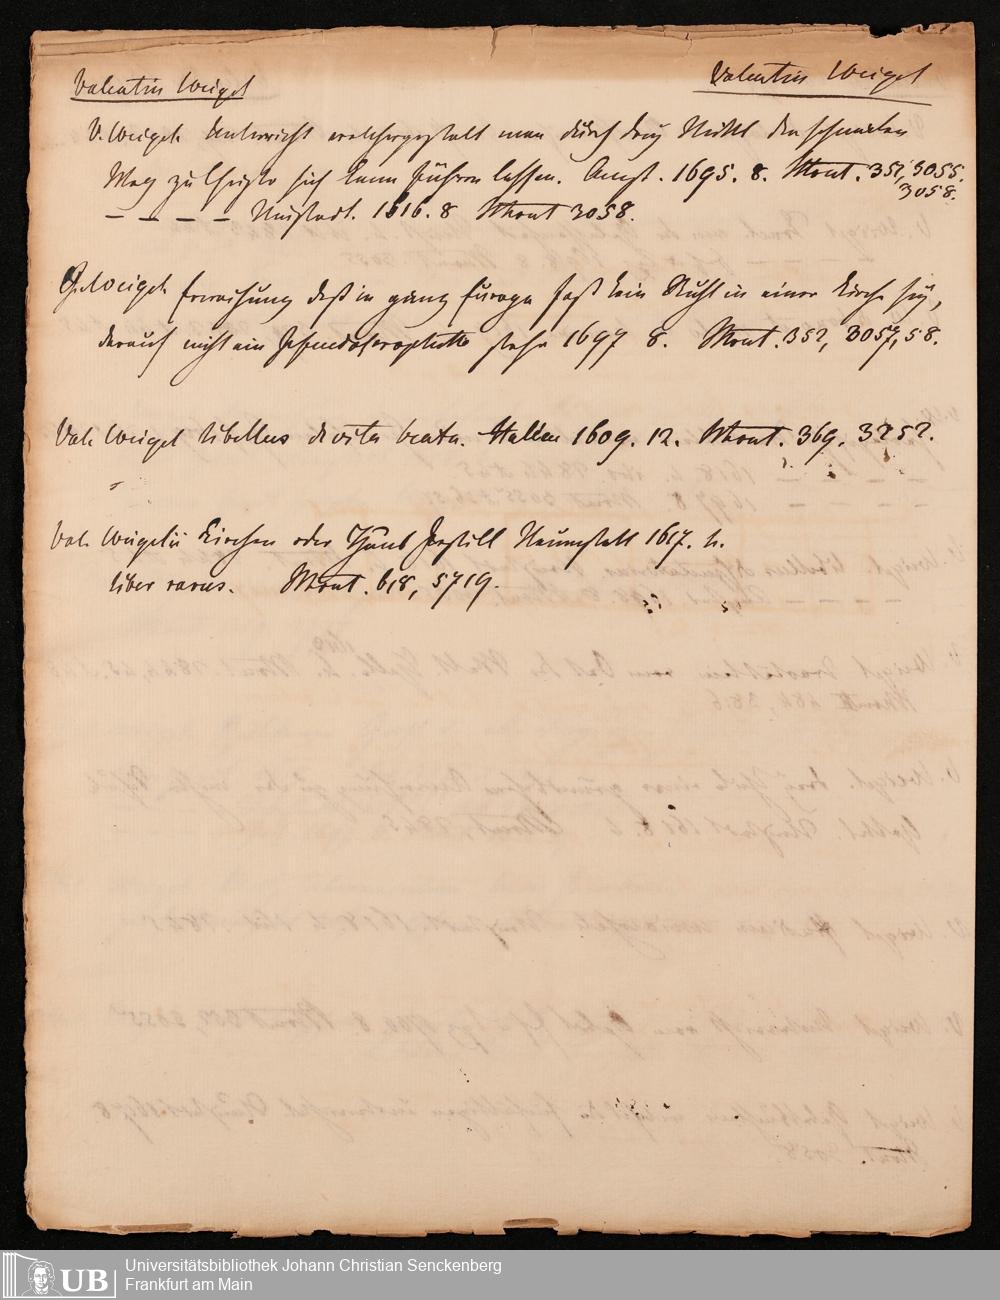 Valentin Weigel
Valentin Weigel
V. Weigels Unterricht welchergestalt man durch drey Mittel den schmalen
Weg zu Christo sich kann führen lassen. Amst. 1695. 8. Mscrt. 352, 3055.
3058.
— — — — Neustadt. 1616. 8 3058.
Weigels Erweisung daß in ganz Europa fast kein Stuhl in einer Kirche sey,
darauf nicht ein Pseudo stehe 1697 8. 352, 3057, 58.
Val. Weigel libellus de vita beata. Hallae 1609. 12. 369. 3252.
Val. Weigelii Kirchen oder Hauß Postill Neuenstatt 1617. 4.
liber rarus. 618, 5719.
UB
Universitätsbibliothek Johann Christian Senckenberg
Frankfurt am Main